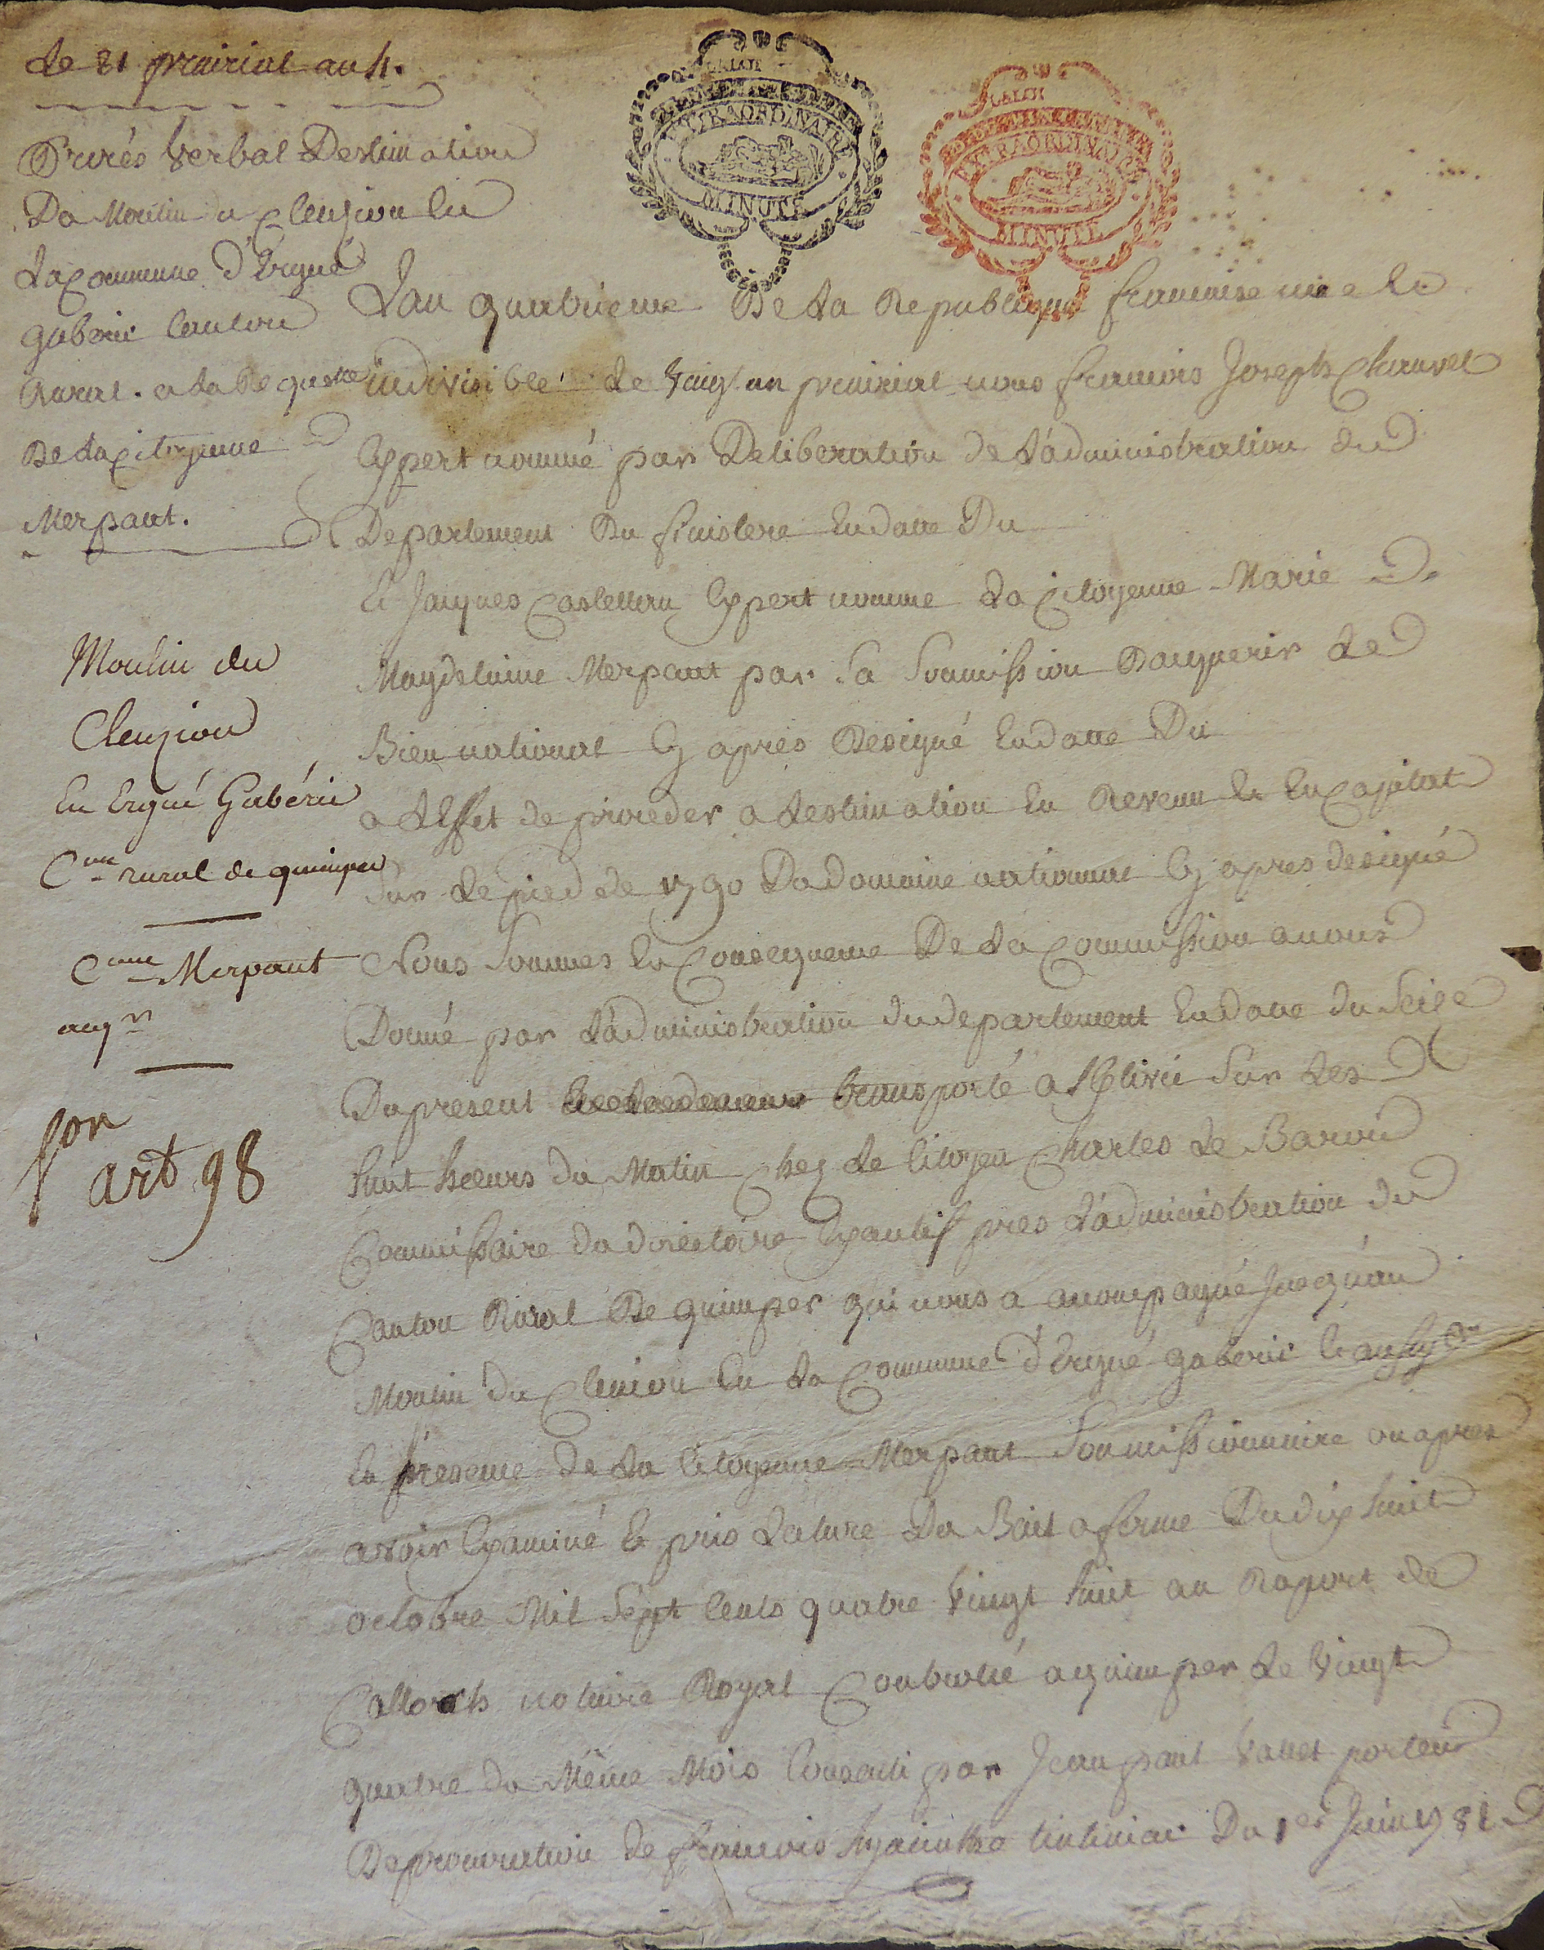 Le 21 prairial an 4.
Procés Verbal Destimation
Du Moulin du Cleuziou En
La Commune d'Ergué
gaberic Canton
Rural. a la Requette
De la Citoyenne
Merpaut.
Moulin du
Cleuziou
En Ergué Gabéric
C.on rural de quimper
C.enne Merpaut
acq.r
f.on
art 98
EXTRAORDINAIRE
MINUTE
EXTRAORDINAIRE
MINUTE
Lan quatrieme De la Republique francaise une Et
indivisible Le Vingt un prairial nous francois Joseph Chauvel
Expert nommé par Deliberation de L'administration du
Departement Du finistere En datte Du
Et Jacques Castellou Expert nomme La Citoyenne Marie
Magdelaine Merpaut par Sa Soumission Dacquerir Le
Bien national Cy apres Designé En datte Du
a L'Effet de proceder a Lestimation En Revenu Et En Capital
Sur Le pied de 1790 Du domaine national Cy apres designé
Nous Sommes En Consequence De La Commission a nous
Donné par L'administration du departement En datte du Seize
Du present transporté a Sur Les
huit heeurs du Matin Chez Le Citoyen Charles Le Barou
Commissaire du directoire Exqutif pres L'administration du
Canton Rural De quimper qui nous a accompagné Jusqu'au
Moulin du Cleuiou En La Commune d'Ergué gaberic Et aussy
En presence de La Citoyenne Merpaut Soumissionnaire ou apres
avoir Examiné Et pris Lecture Du Bail a ferme Du dix huit
octobre Mil Sept Cents quatre Vingt huit au Raport de
Calloch notaire Royal Controllé a quimper Le Vingt
quatre du Même Mois Consenti par Jean paul Vallet porteur
De procuration de francois hyacinthe tinteniac Du 1er Juin 1781